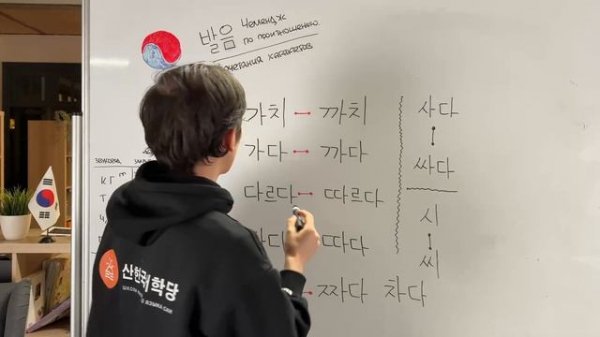 발음 Челендж
по произношению
가치 까치
가다 까다
다르다 따르다
따다
짜다 차다
사다
싸다
시
씨
산한국어학당